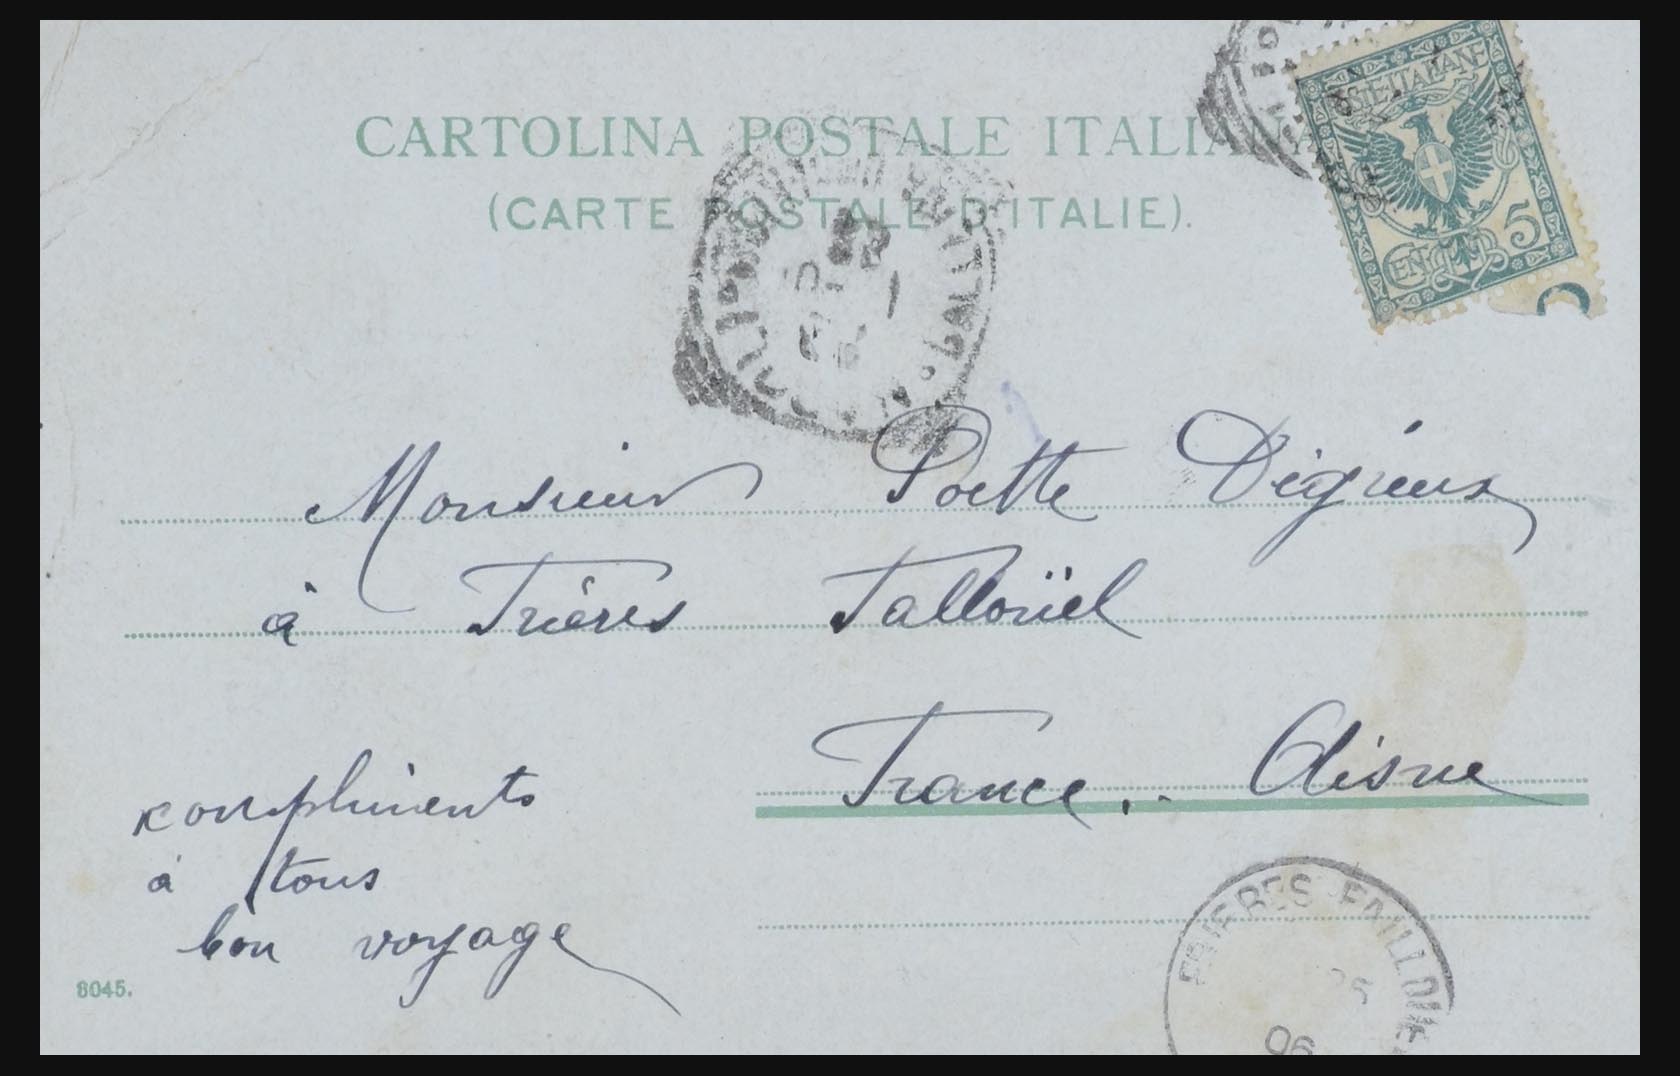 CARTOLINA POSTALE ITALIANA
(CARTE POSTALE D'ITALIE).
POSTE ITALIANE
CEN 5
Monsieur Poette Dégrieux
à Frières Failloüel
France.. Aisne
Kompliments
à tous
bon voyage
8045.
FRIERES-FAILLOUEL
06